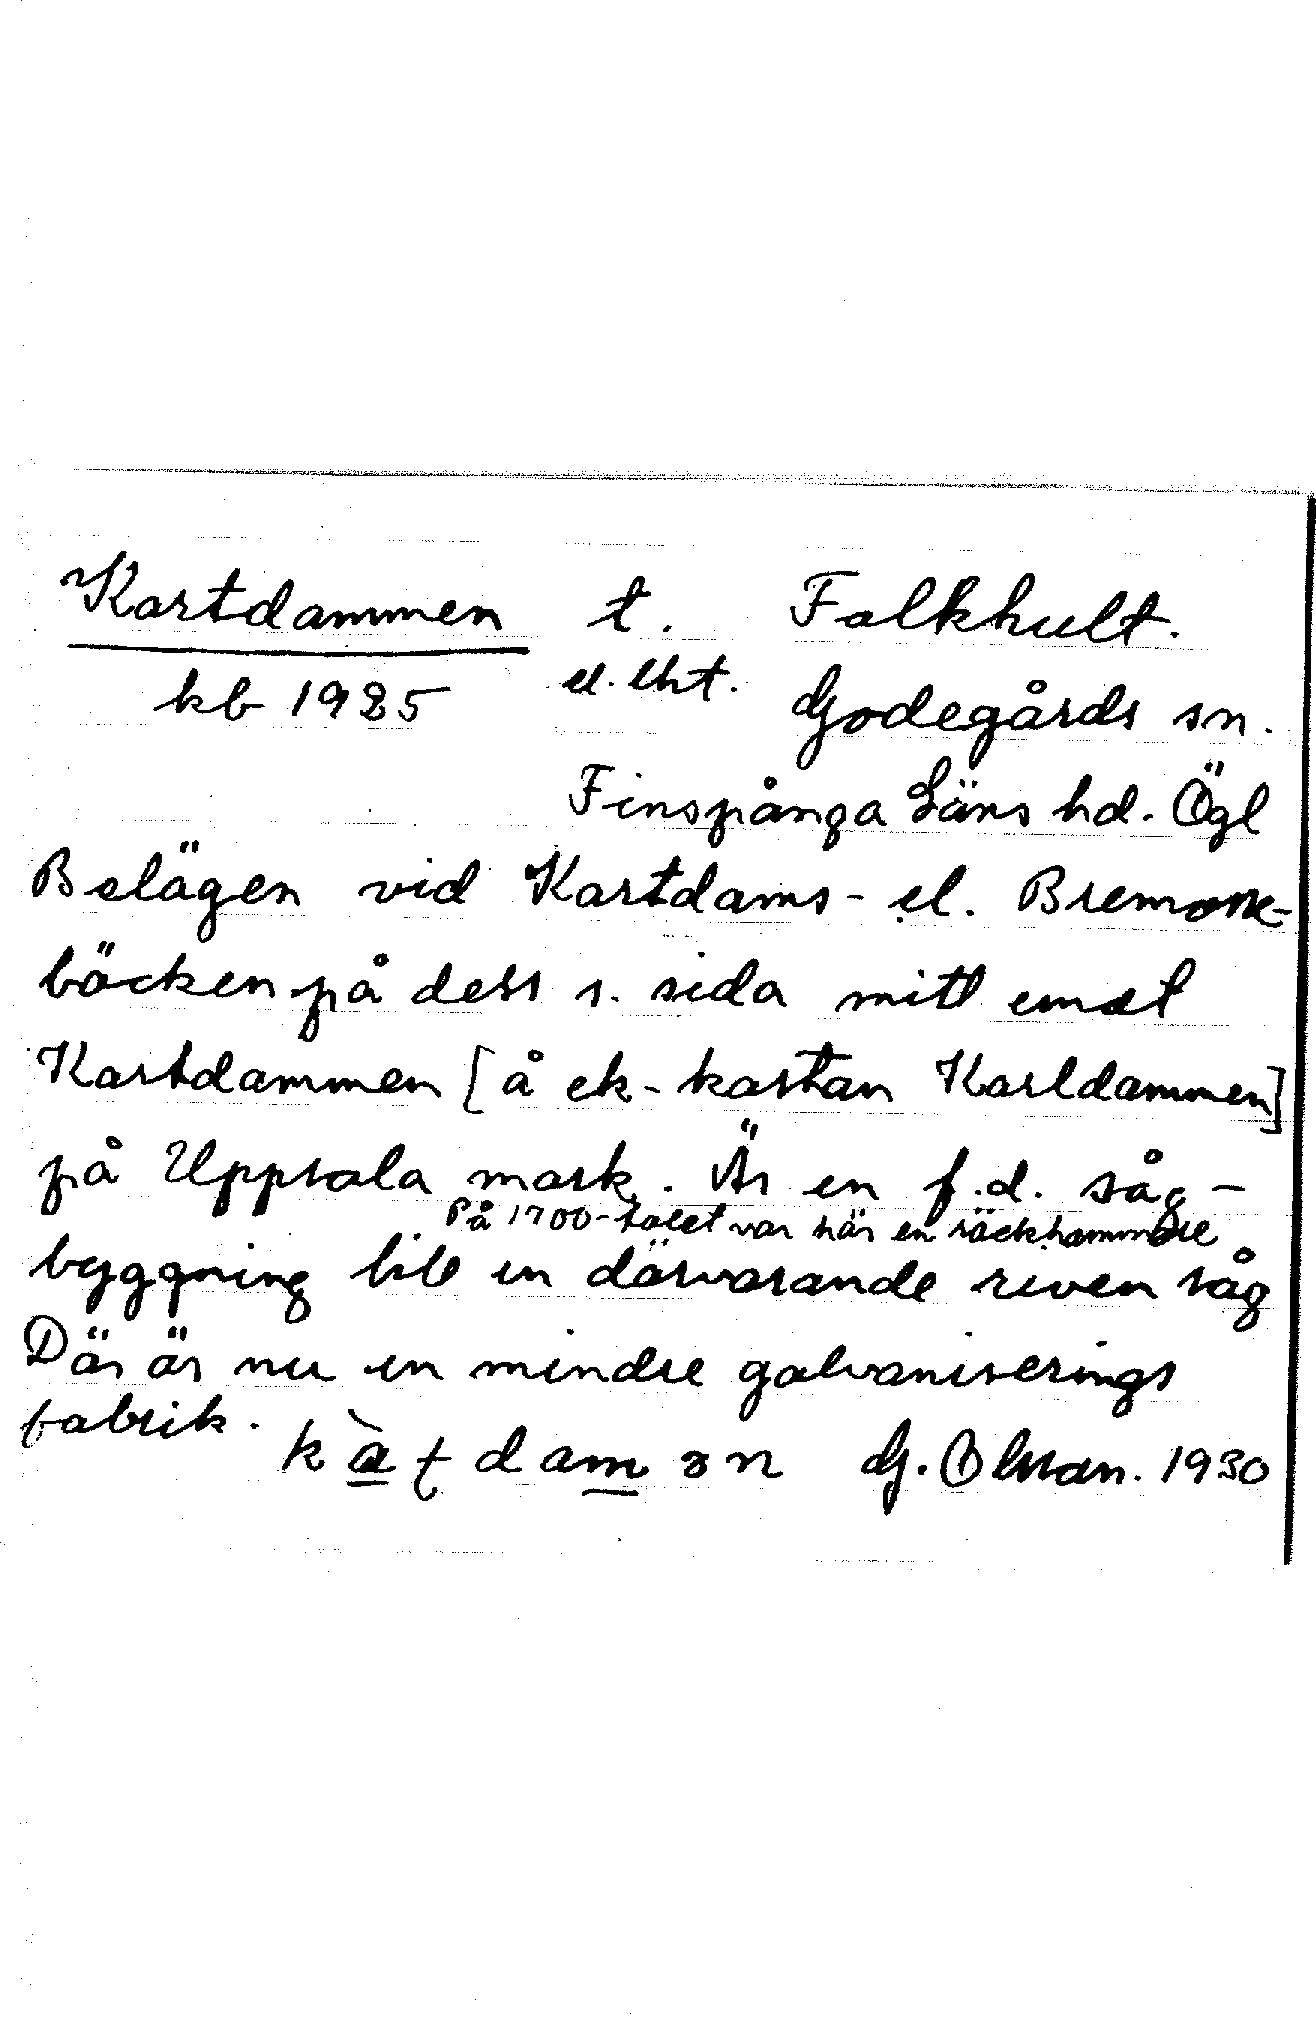 Kartdammen t. Falkhult.
kb 1925 el. lht. Godegårds sn.
Finspånga Läns hd. Ögl
Belägen vid Kartdams- el. Bremosse-
bäcken på dess s. sida mitt emot
Kartdammen [å ek-kartan Karldammen]
på Uppsala mark. Är en f.d. såg-
På 1700-talet var här en räckhammare
byggning till en därvarande riven såg
Där är nu en mindre galvaniserings
fabrik. kàtdamən G. Olsson. 1930